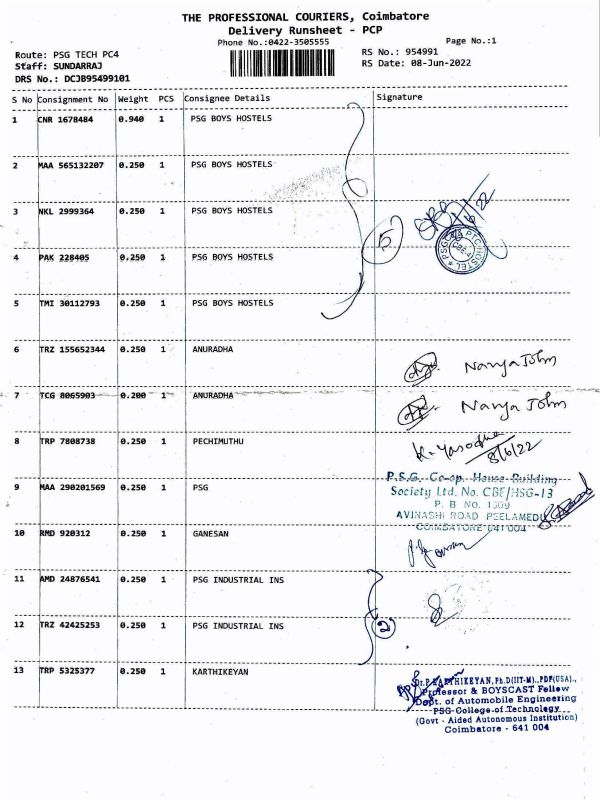 THE PROFESSIONAL COURIERS, Coimbatore
Delivery Runsheet - PCP
Phone No.:0422-3505555
Page No.:1
Route: PSG TECH PC4
RS No.: 954991
Staff: SUNDARRAJ
RS Date: 08-Jun-2022
DRS No.: DCJB95499101
S No Consignment No Weight PCS Consignee Details Signature
1 CNR 1678484 0.940 1 PSG BOYS HOSTELS
2 MAA 565132207 0.250 1 PSG BOYS HOSTELS
3 NKL 2999364 0.250 1 PSG BOYS HOSTELS
5
4 PAK 228405 0.250 1 PSG BOYS HOSTELS
5 TMI 30112793 0.250 1 PSG BOYS HOSTELS
6 TRZ 155652344 0.250 1 ANURADHA Navya John
7 TCG 8065903 0.200 1 ANURADHA Navya John
8 TRP 7808738 0.250 1 PECHIMUTHU K. Yasodha
8/6/22
P.S.G. Co-op. House Building
9 MAA 290201569 0.250 1 PSG Society Ltd. No. CBE/HSG-13
P. B No. 1509
AVINASHI ROAD PEELAMEDU
COIMBATORE 641 004
10 RMD 920312 0.250 1 GANESAN
11 AMD 24876541 0.250 1 PSG INDUSTRIAL INS
12 TRZ 42425253 0.250 1 PSG INDUSTRIAL INS 2
13 TRP 5325377 0.250 1 KARTHIKEYAN
Dr.P.KARTHIKEYAN, Ph.D(IIT-M).,PDF(USA).,
Professor & BOYSCAST Fellow
Dept. of Automobile Engineering
PSG College of Technology
(Govt - Aided Autonomous Institution)
Coimbatore - 641 004